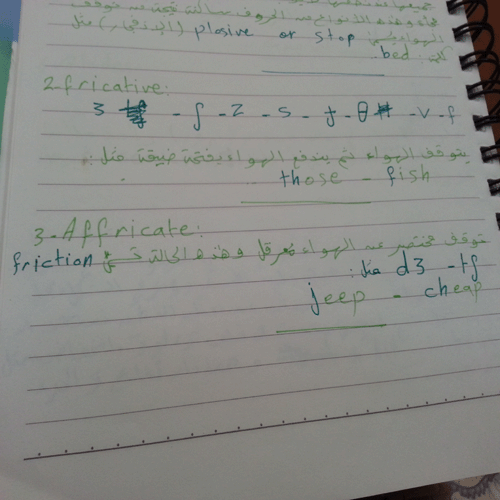 الهواء plosive or stop (الإنفجار) مثل
كلمة: bed.
2-fricative:
3 - ʃ - z - s - ɟ - θ - v - f
يتوقف الهواء ثم يندفع الهواء بفتحة ضيقة مثل:
those - fish
3-Affricate:
توقف مختصر عند الهواء مُعرقل وهذه الحالة friction
dʒ - tʃ مثل:
jeep - cheap